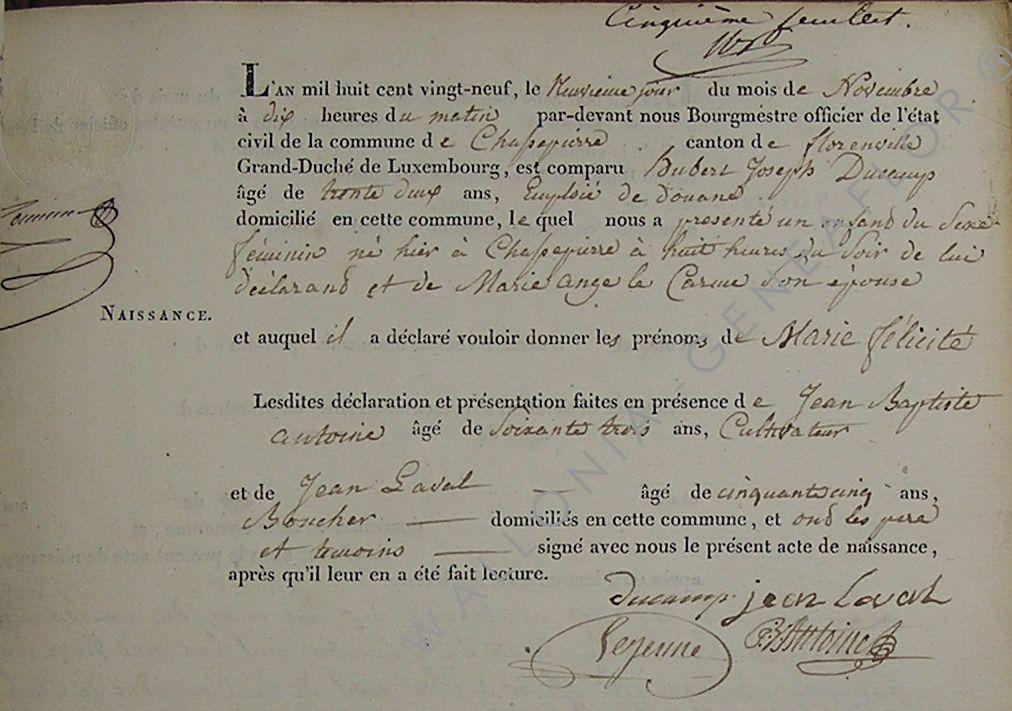 Cinquième feuillet.
L'AN mil huit cent vingt-neuf, le Neuvieme jour du mois de Novembre
à dix heures du matin par-devant nous Bourgmestre officier de l'état
civil de la commune de Chassepierre canton de florenville
Grand-Duché de Luxembourg, est comparu hubert Joseph Ducamp
âgé de trente deux ans, Emploié de Douane
domicilié en cette commune, lequel nous a presenté un enfand du Sexe
féminin né hier à Chassepierre à huit heures du Soir de lui
déclarand et de Marie ange le Carme Son épouse
NAISSANCE.
et auquel il a déclaré vouloir donner les prénoms de Marie félicité
Lesdites déclaration et présentation faites en présence de Jean Baptiste
antoine âgé de Soixante trois ans, Cultivateur
et de Jean Laval — âgé de cinquante cinq ans,
Boucher — domiciliés en cette commune, et ond les pere
et temoins — signé avec nous le présent acte de naissance,
après qu'il leur en a été fait lecture.
Ducamp jean Laval
Lejeune J.B. Antoine
WALLONIA GENEAFLOR ®